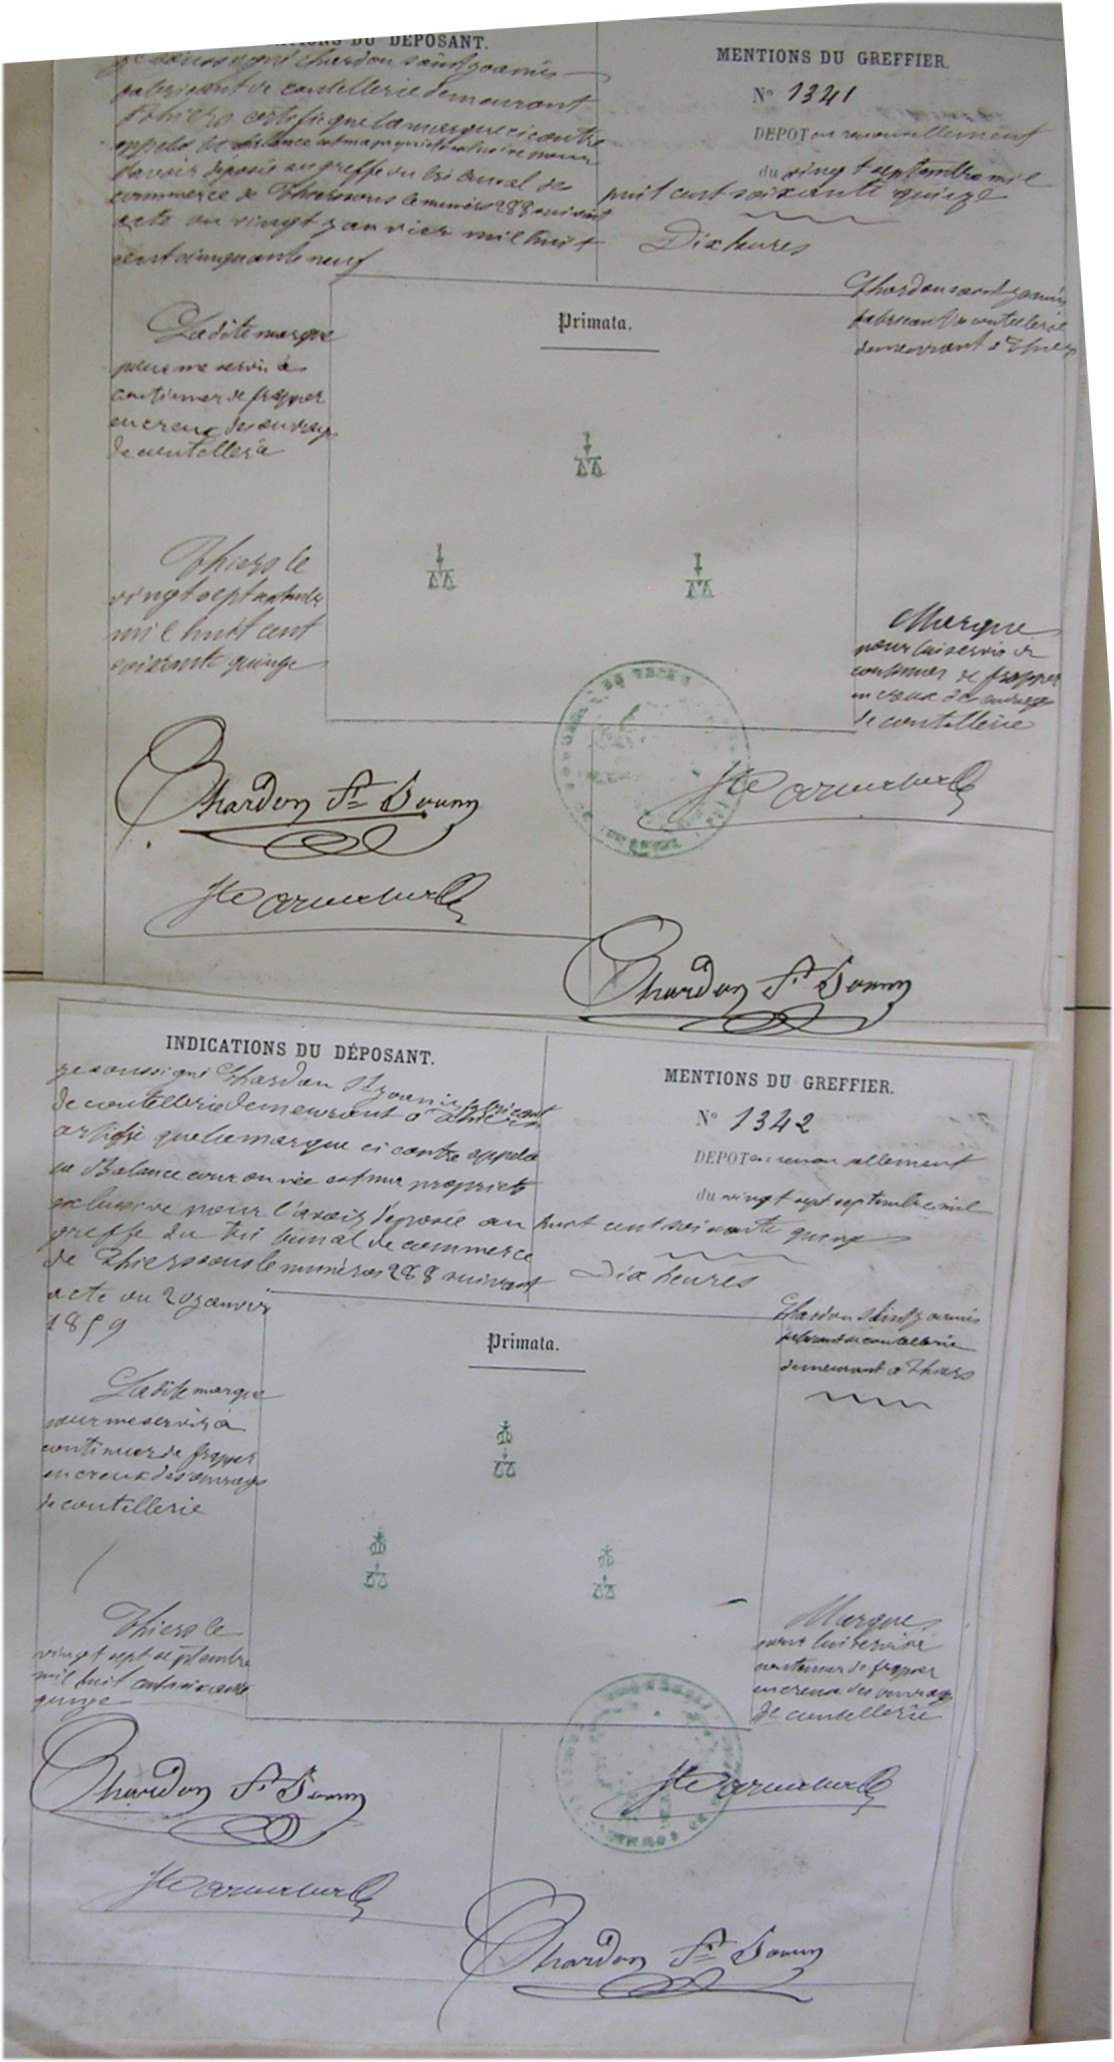 INDICATIONS DU DÉPOSANT.
je soussigné Chardon saint joanis
fabricant de coutellerie demeurant
Thiers certifie que la marque ci contre
appelée la balance est ma propriété exclusive pour
l'avoir déposée au greffe du tribunal de
commerce de Thiers sous le numéro 288 suivant
acte du vingt janvier mil huit
cent cinquante neuf
La dite marque
pour me servir à
continuer de frapper
en creux des ouvrages
de coutellerie
Thiers le
vingt sept septembre
mil huit cent
soixante quinze
Chardon St Joanis
MENTIONS DU GREFFIER.
N° 1341
DEPOT en renouvellement
du vingt septembre mil
huit cent soixante quinze
Dix heures
Primata.
Chardon saint joanis
fabricant de coutellerie
demeurant à Thiers
Marque
pour lui servir à
continuer de frapper
en creux des ouvrages
de coutellerie
Chardon St Joanis
INDICATIONS DU DÉPOSANT.
je soussigné Chardon St joanis fabricant
de coutellerie demeurant à Thiers
certifie que la marque ci contre appelée
la Balance couronnée est ma propriété
exclusive pour l'avoir déposée au
greffe du tribunal de commerce
de Thiers sous le numéros 288 suivant
acte du 20 janvier
1859
La dite marque
pour me servir à
continuer de frapper
en creux des ouvrages
de coutellerie
Thiers le
vingt sept septembre
mil huit cent soixante
quinze
Chardon St Joanis
MENTIONS DU GREFFIER.
N° 1342
DEPOT en renouvellement
du vingt sept septembre mil
huit cent soixante quinze
Dix heures
Primata.
Chardon saint joanis
fabricant de coutellerie
demeurant à Thiers
Marque
pour lui servir à
continuer de frapper
en creux des ouvrages
de coutellerie
Chardon St Joanis